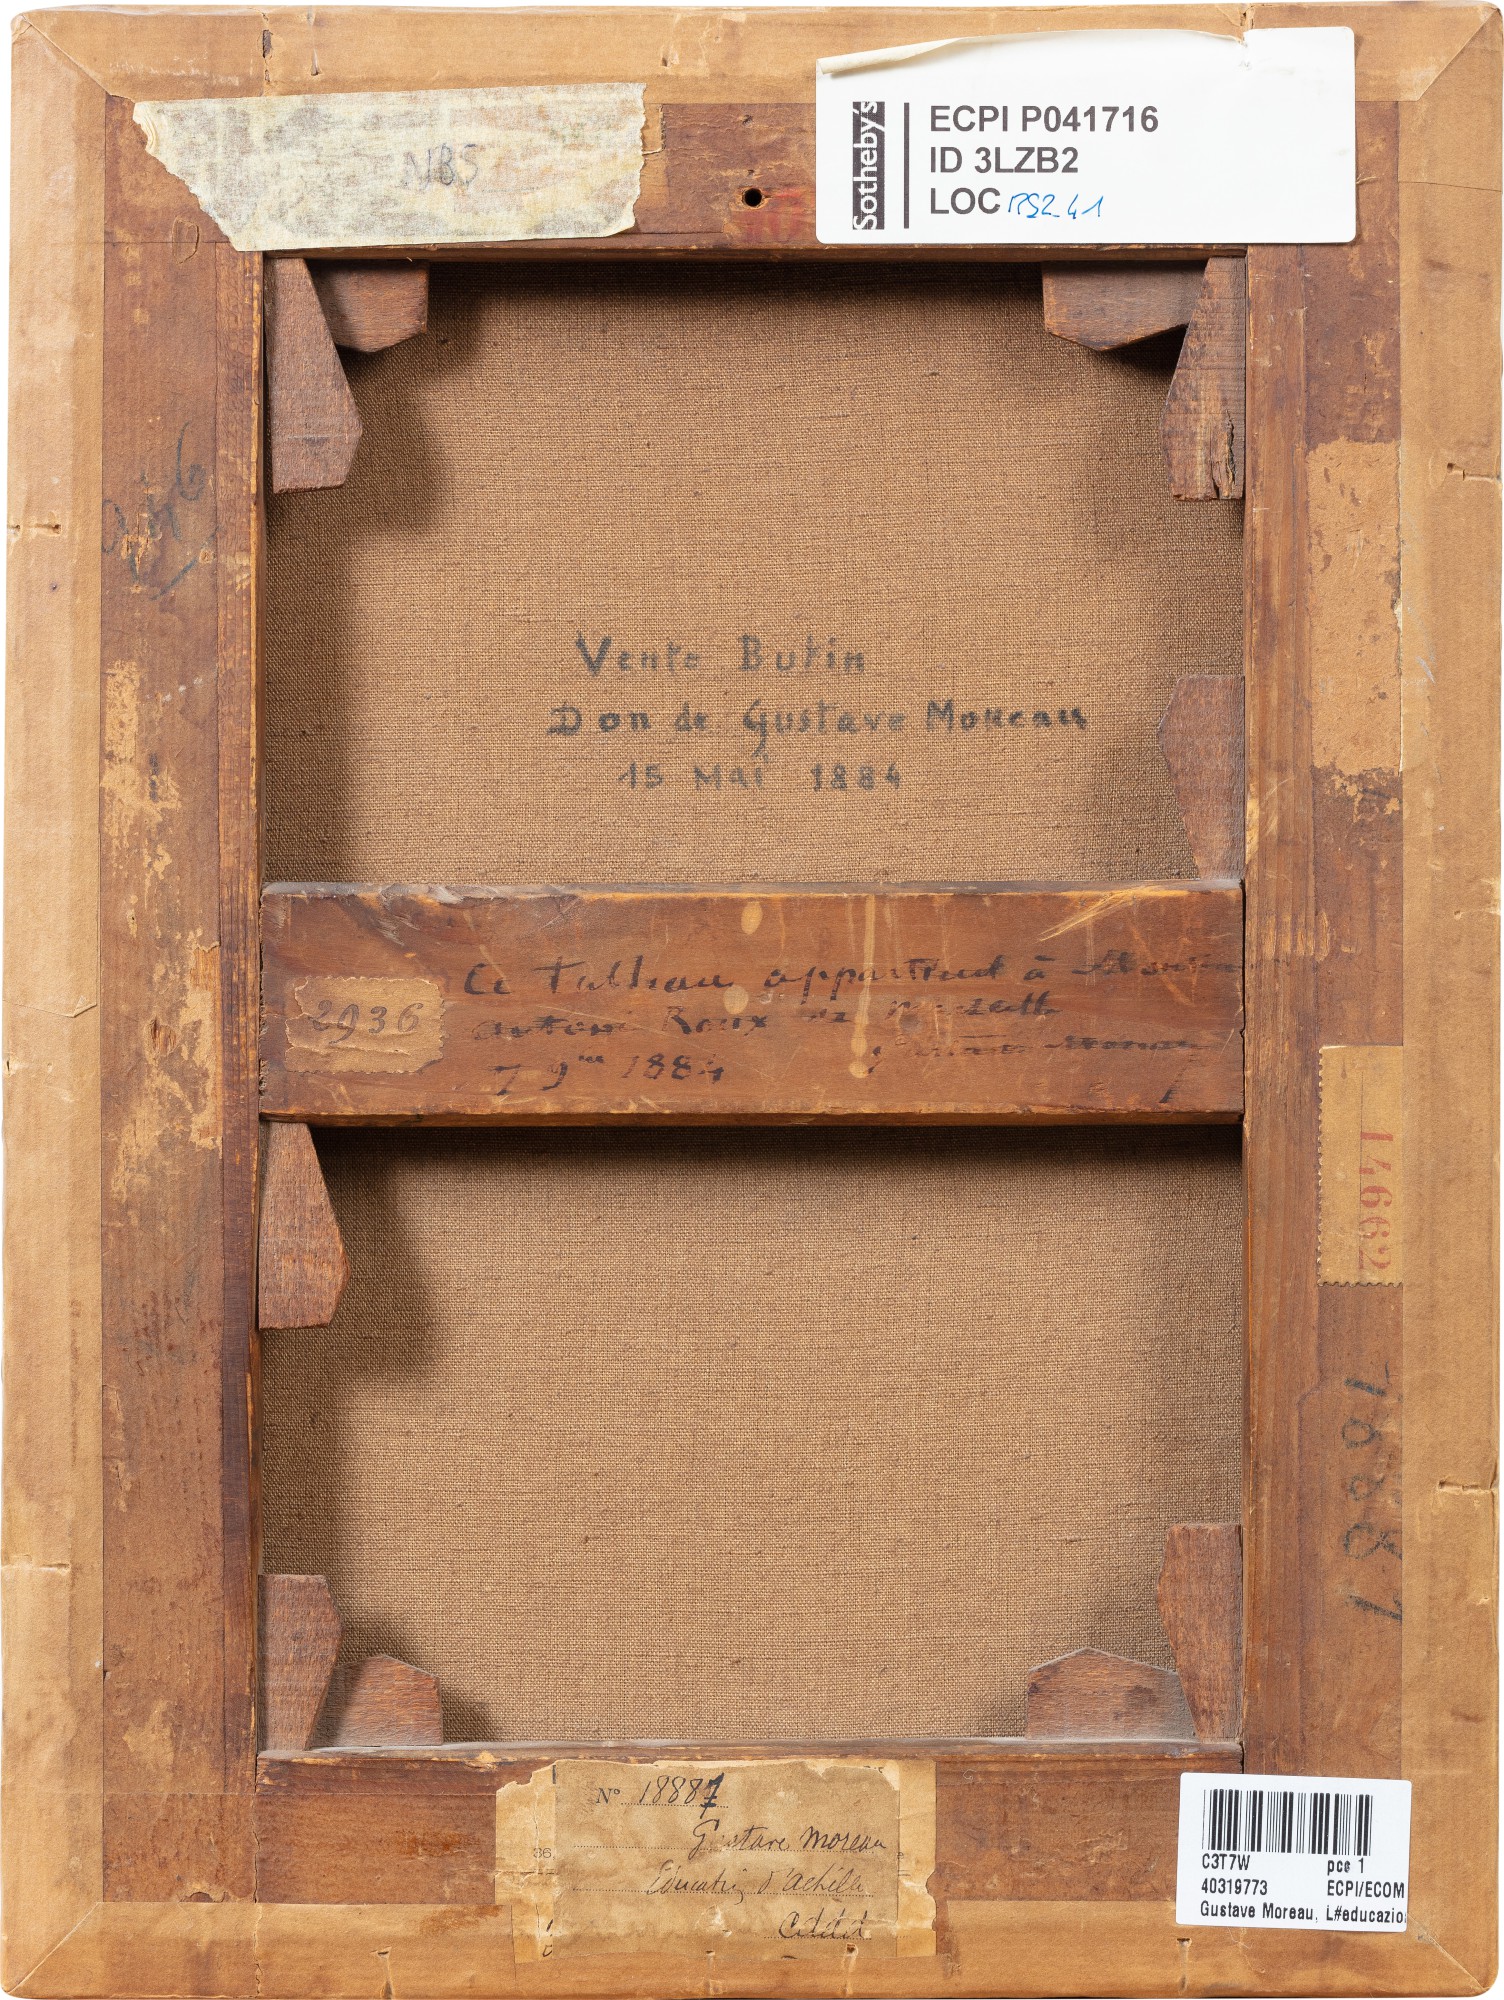 N85
Sotheby's
ECPI P041716
ID 3LZB2
LOC RS2 41
Vente Butin
Don de Gustave Moreau
15 Mai 1884
2936
Ce tableau appartient à Monsieur
Antoni Roux de Marseille
7 9bre 1884
Gustave Moreau
14662
18887
36
N° 18887
Gustave Moreau
Education d'Achille
C3T7W pcs 1
40319773 ECPI/ECOM
Gustave Moreau, L#educazio